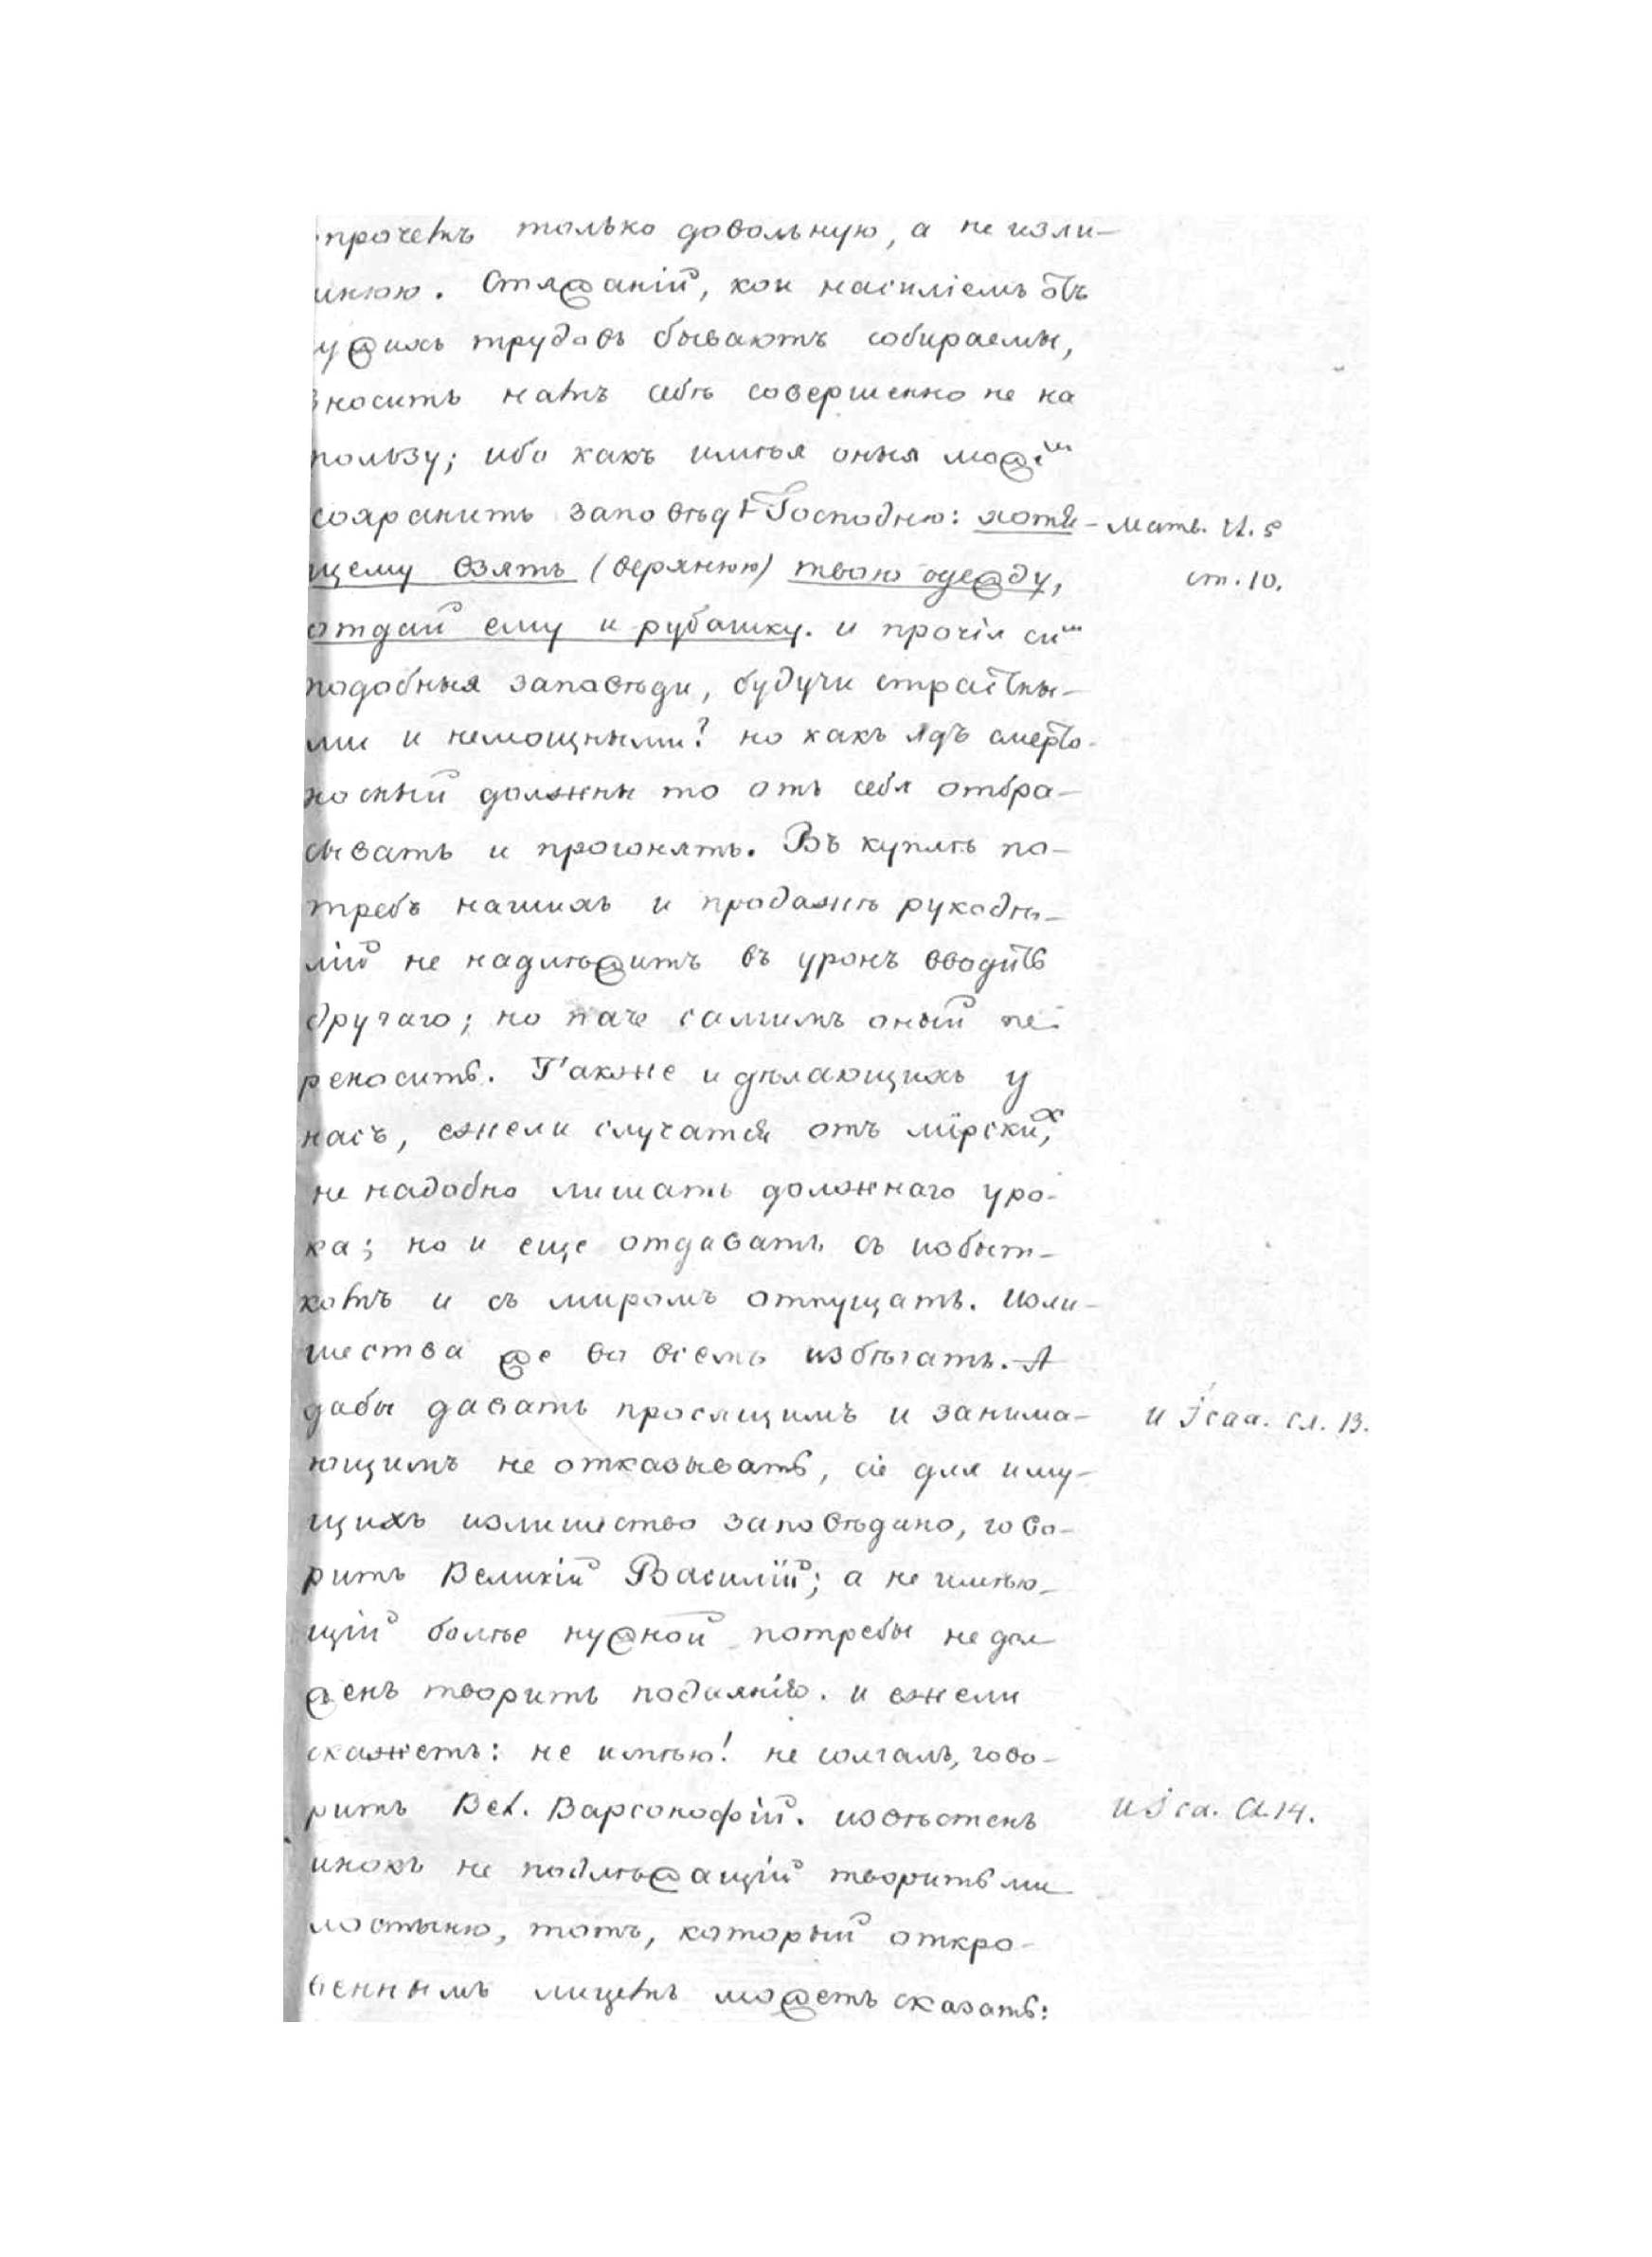 прочемъ только довольную, а не изли-
шнюю. Стяжаній, кои насиліемъ отъ
чужихъ трудовъ бываютъ собираемы,
вносить намъ себѣ совершенно не на
пользу; ибо какъ имѣя оныя можем
сохранить заповѣдь Господню: хотя- Матѳ. гл. 5
щему взять (верхнюю) твою одежду, ст. 10.
отдай ему и рубашку. и прочія сим
подобныя заповѣди, будучи страстны-
ми и немощными? но какъ ядъ смерто-
носный должны то отъ себя отбра-
сывать и прогонять. Въ куплѣ по-
требъ нашихъ и продажѣ рукодѣ-
лій не надлѣжитъ въ уронъ вводить
другаго; но паче самимъ оный пе-
реносить. Также и дѣлающихъ у
насъ, ежели случатся отъ мірских,
не надобно лишать должнаго уро-
ка; но и еще отдавать съ избыт-
комъ и съ миромъ отпущать. Изли-
шества же во всемъ избѣгать. А
дабы давать просящимъ и занима- и Ісаа. сл. 13.
ющимъ не отказывать, сіе для иму-
щихъ излишество заповѣдано, гово-
ритъ Великій Василій; а не имѣю-
щій болѣе нужной потребы не дол
женъ творить подаянію. и ежели
скажетъ: не имѣю! не солгалъ, гово-
ритъ Вел. Варсонофій. извѣстенъ и Іса. сл. 14.
инокъ не подлѣжащій творить ми
лостыню, тотъ, который откро-
веннымъ лицемъ можетъ сказать: